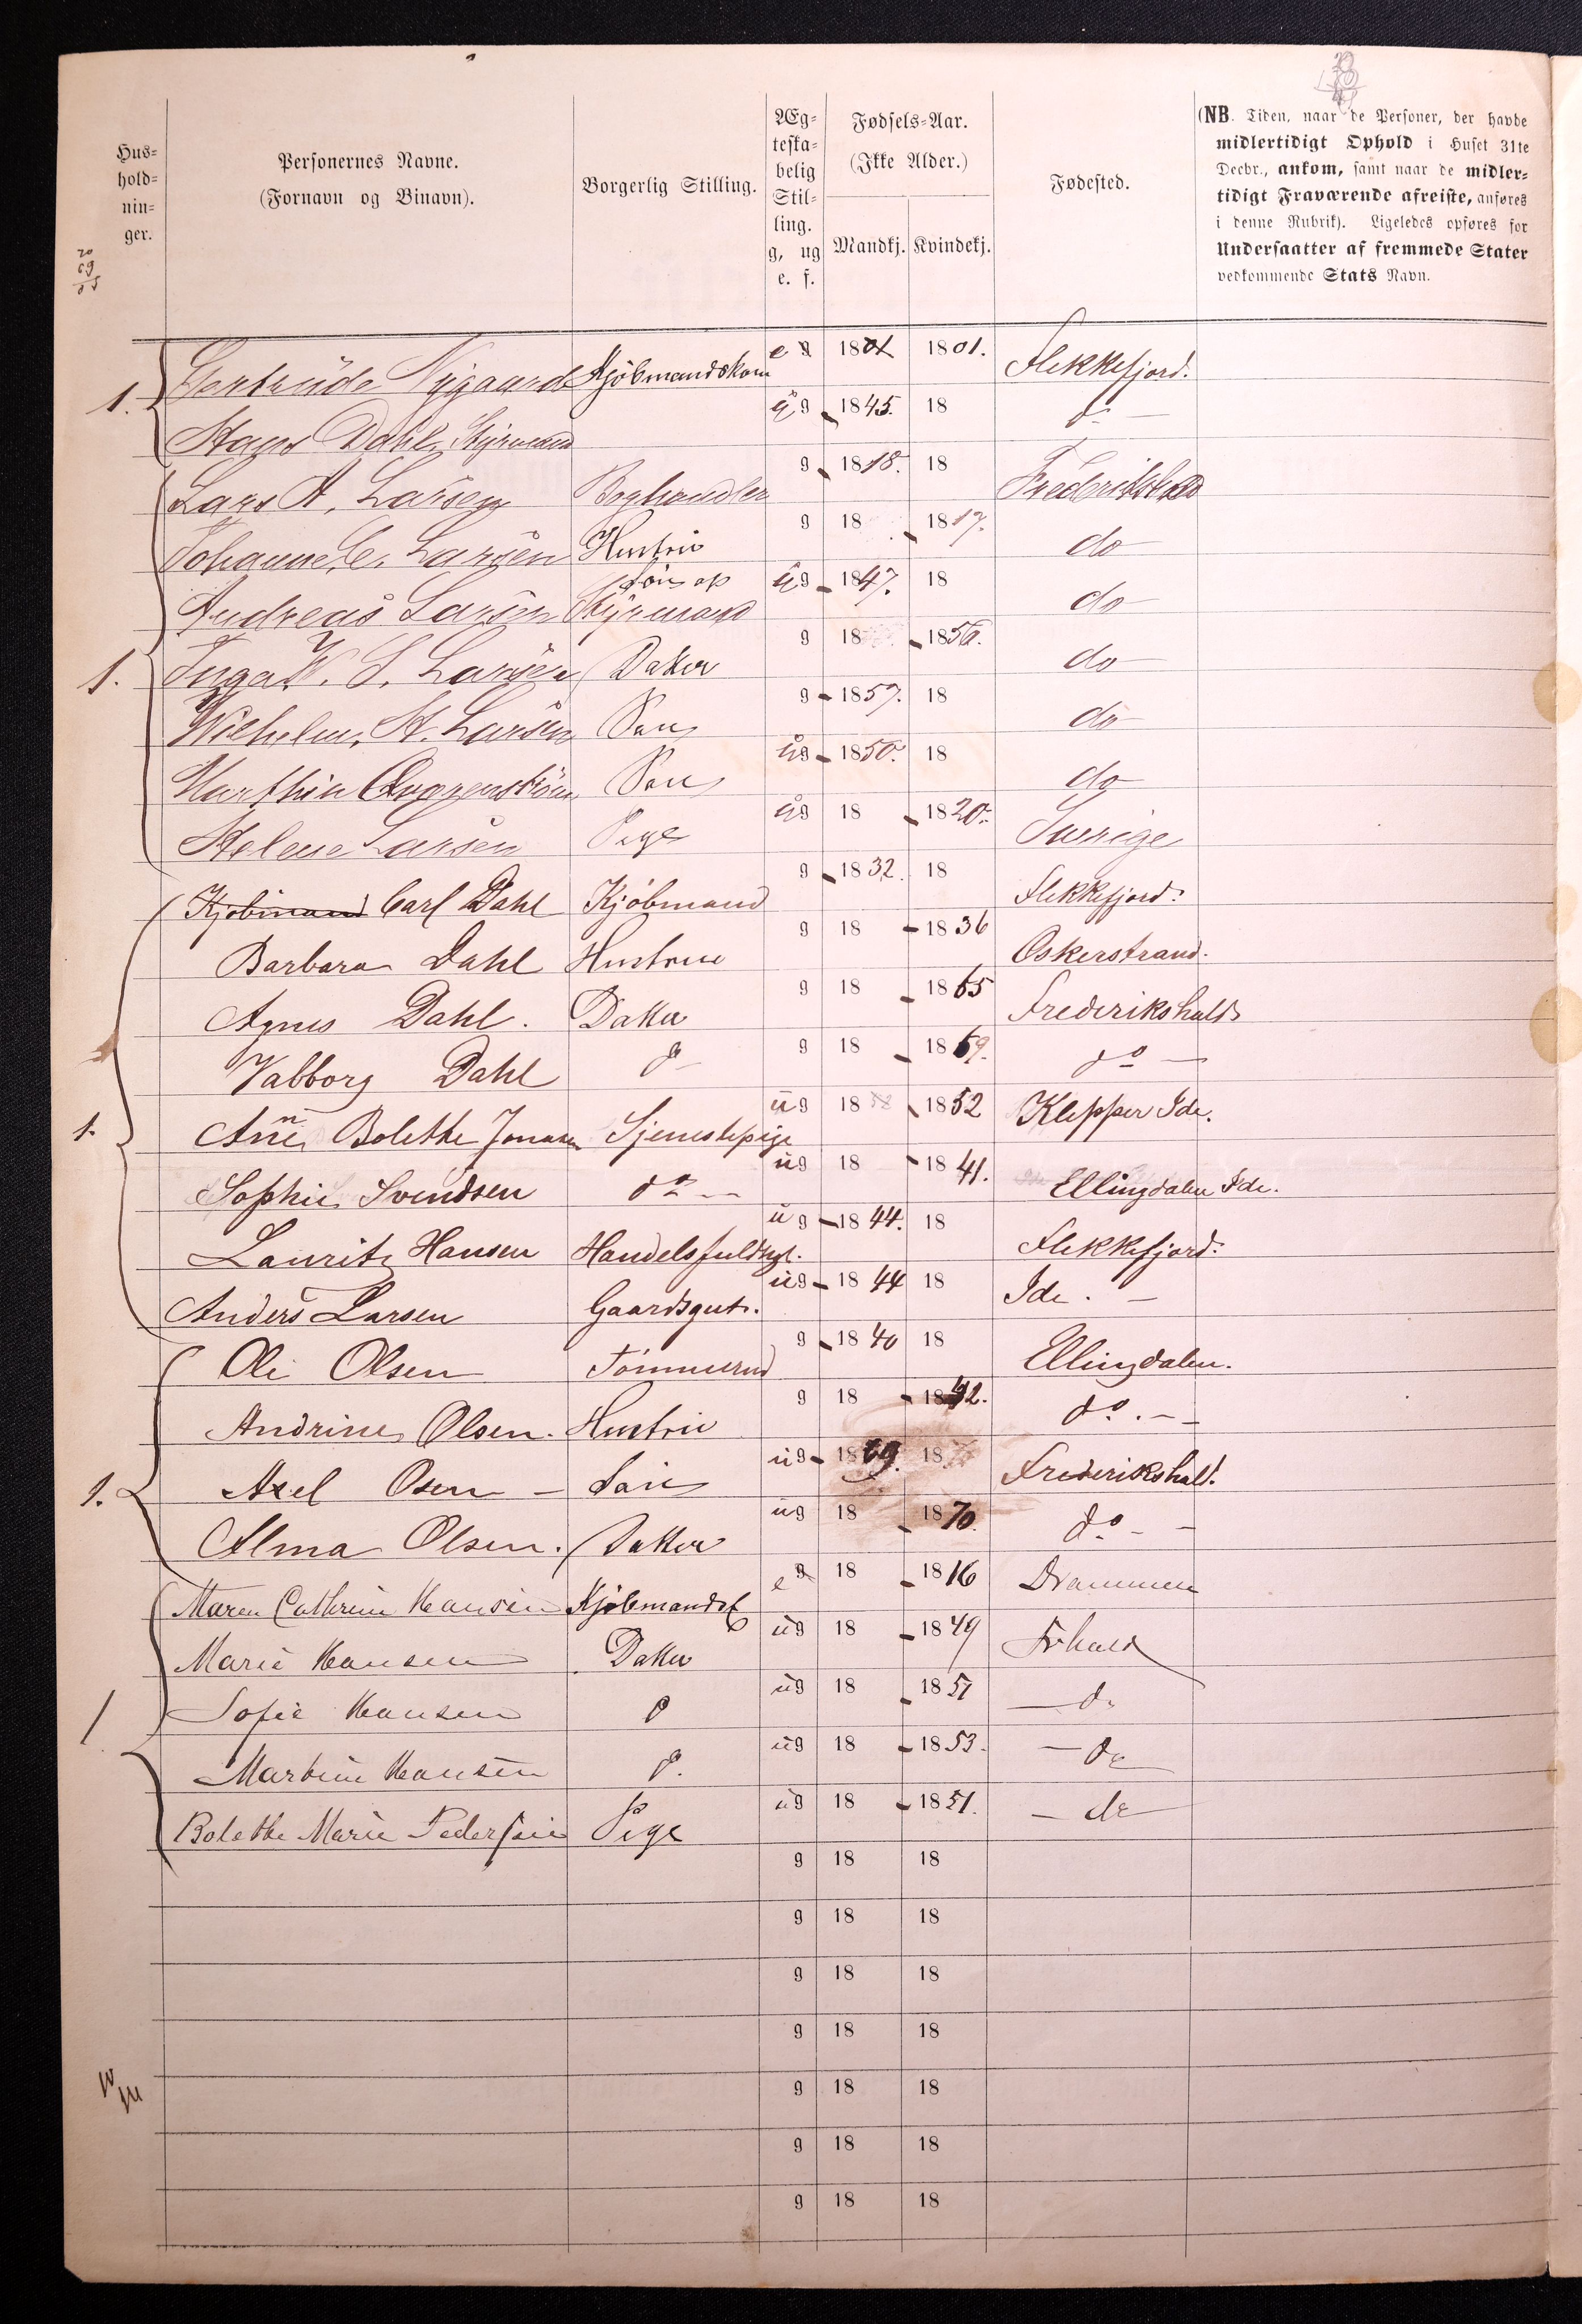 Hus=
hold=
nin=
ger.
Personernes Navne.
(Fornavn og Binavn).
Borgerlig Stilling.
Æg=
teska=
belig
Stil=
ling.
g, ug
e. f.
Fødsels=Aar.
(Ikke Alder.)
Mandkj. Kvindekj.
Fødested.
(NB. Tiden, naar de Personer, der havde
midlertidigt Ophold i Huset 31te
Decbr., ankom, samt naar de midler=
tidigt Fraværende afreiste, anføres
i denne Rubrik). Ligeledes opføres for
Undersaatter af fremmede Stater
vedkommende Stats Navn.
1. Gertrude Nygaard Kjøbmandskone e g 1801 1801. Flekkefjord.
Hans Dahl, Styrmand ug 1845. 18 do
Lars A. Larsen Boghandler g 1818. 18 Frederikshald
Johanne C. Larsen Hustrue g 18 1817. do
Andreas Larsen Søn og Styrmand ug 1847. 18 do
1. Inga W. S. Larsen Datter g 18 1856. do
Wilhelm A. Larsen Søn g 1857. 18 do
Marthin Søn ug 1850. 18 do
Helene Larsen Pige ug 18 1820. Sverige
Kjøbmand Carl Dahl Kjøbmand g 1832. 18 Flekkefjord.
Barbara Dahl Hustrue g 18 1836 Oskerstrand.
Agnes Dahl. Datter g 18 1865 Frederikshald
Valborg Dahl do g 18 1869. do
1. Anne Bolethe Jonasen Tjenestepige ug 18 1852 Klepper Ide.
Sophie Svendsen do ug 18 1841. Ellingdalen Ide.
Lauritz Hansen Handelsfuldmgt. ug 1844. 18 Flekkefjord.
Anders Larsen Gaardsgut. ug 1844 18 Ide.
Ole Olsen Tømmermd g 1840 18 Ellingdalen.
Andrine Olsen. Hustrue g 18 1842. do.
1. Axel Osen Søn ug 1869. 18 Frederikshald.
Alma Olsen. Datter ug 18 1870. do
Maren Cathrine Hansen Kjøbmandsk e g 18 1816 Drammen
Marie Hansen Datter ug 18 1849 Frhald
1 Sofie Hansen do ug 18 1851 do
Martine Hansen do. ug 18 1853. do
Bolethe Marie Pedersen Pige ug 18 1851. do
g 18 18
g 18 18
g 18 18
g 18 18
g 18 18
g 18 18
g 18 18